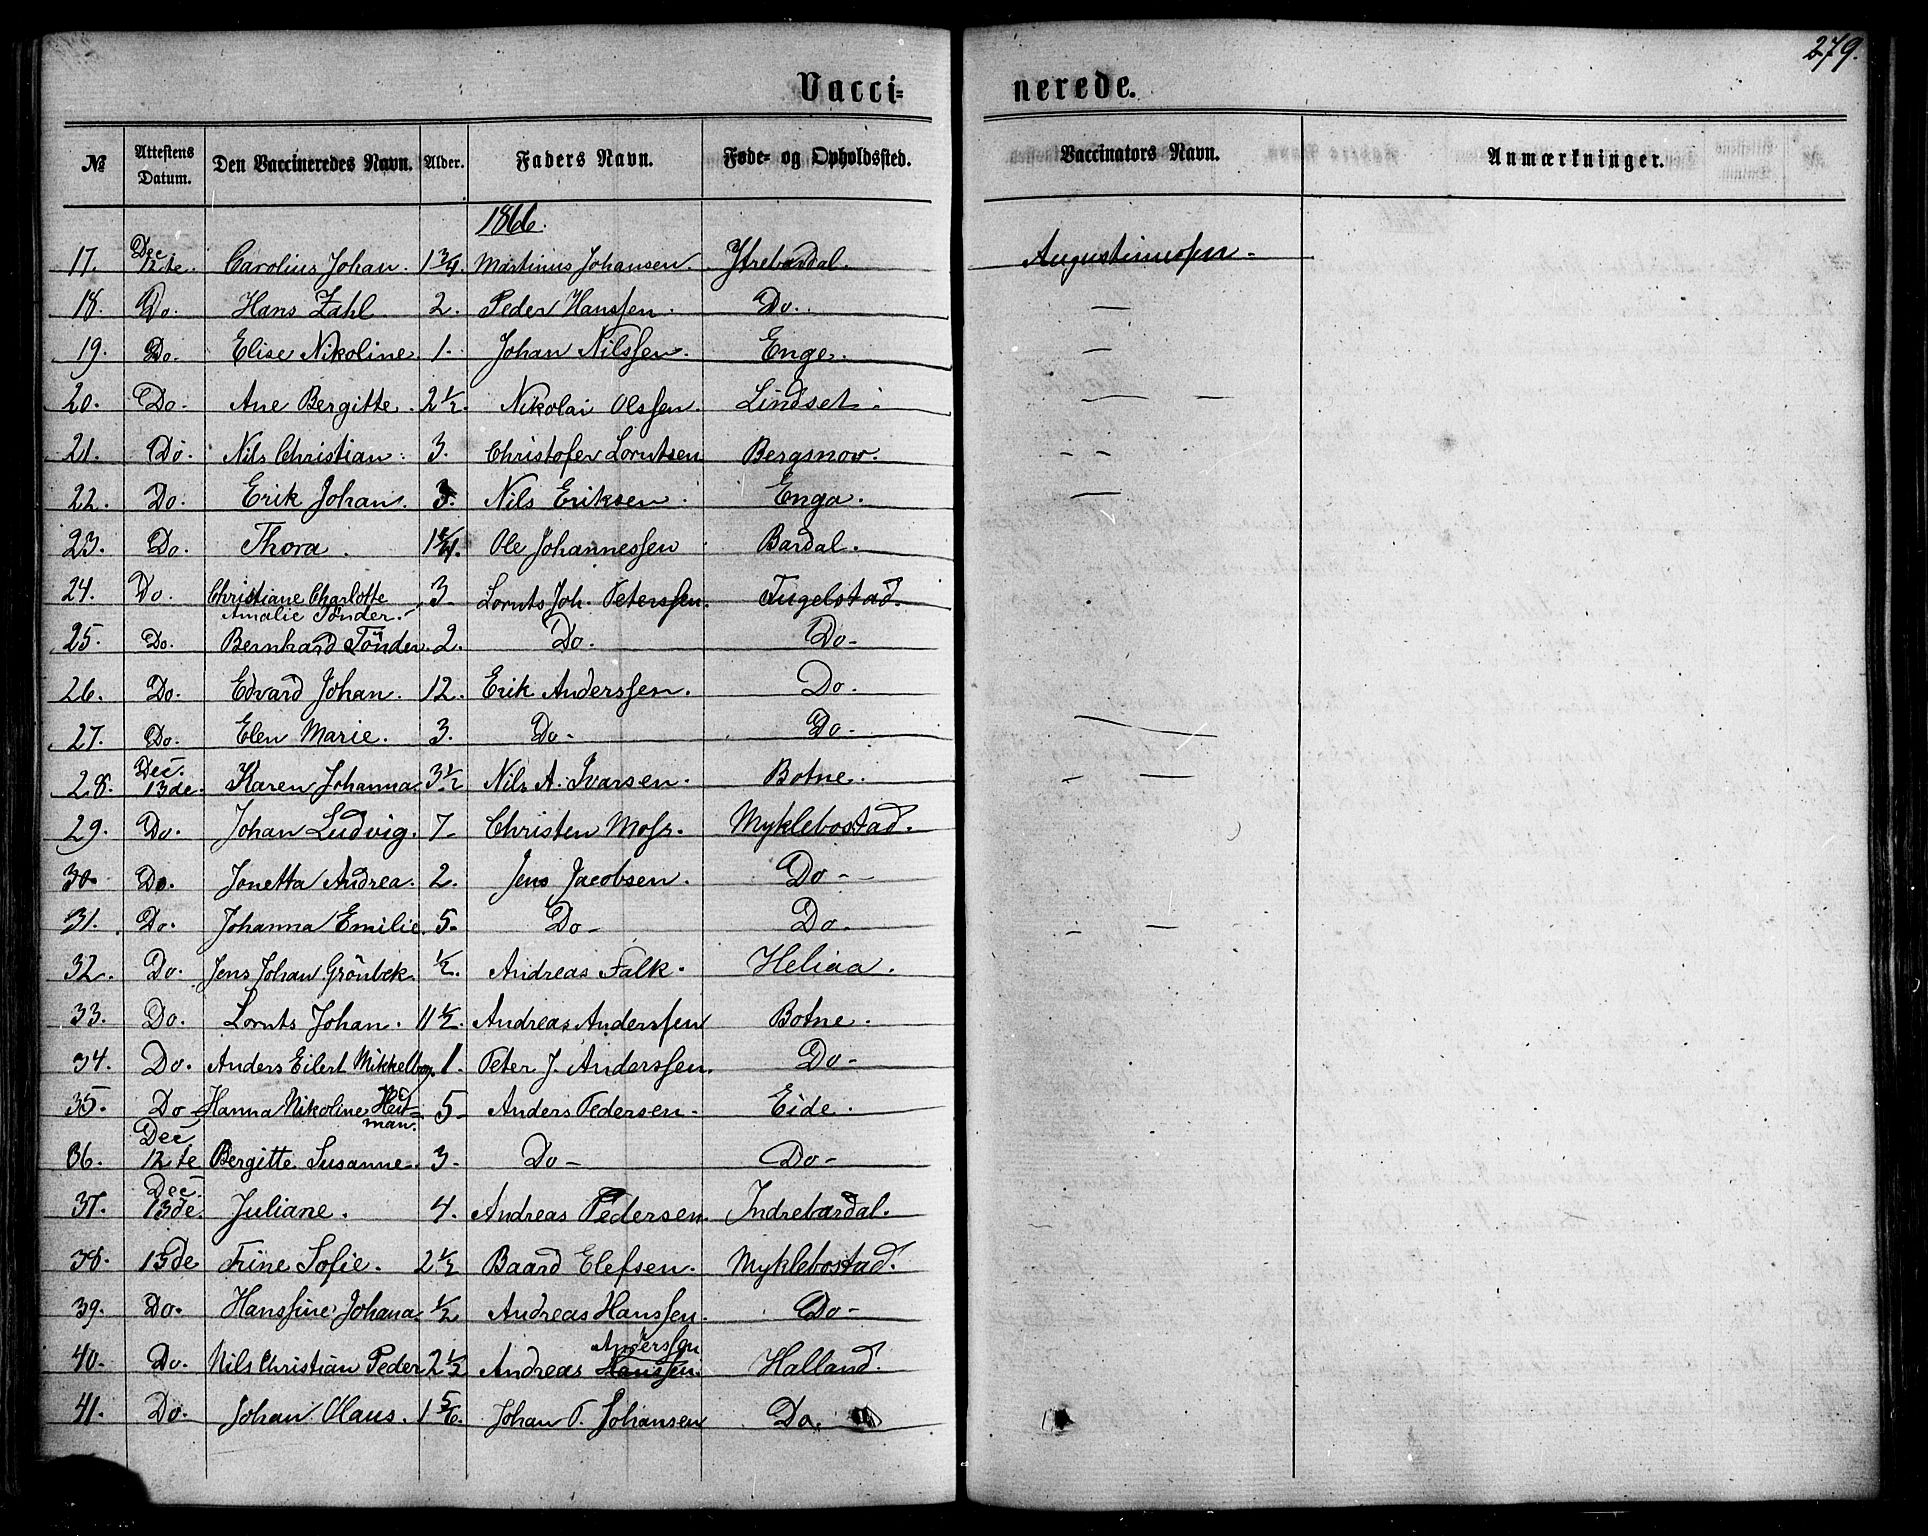 279.
Vacci= nerede.
№ Attestens Datum. Den Vaccineredes Navn. Alder. Faders Navn. Føde- og Opholdssted. Vaccinators Navn. Anmærkninger.
1866.
17. Dec 12te. Carolius Johan. 1 3/4 Martinus Johansen. Ytrebardal. Augustinussen.
18. Do. Hans Zahl 2. Peder Hanssen. Do. —
19. Do. Elise Nikoline 1. Johan Nilssen. Enge. —
20. Do. Ane Bergitte. 2 1/2. Nikolai Olssen. Lindset. — —
21. Do. Nils Christian. 3. Christofer Lorntsen Bergsnov. - -
22. Do. Erik Johan. 3. Nils Eriksen. Enga. —
23. Do. Thora. Ole Johannessen Bardal.
24. Do. Christiane Charlotte Amalie Tönder. 3 Lornts Joh. Peterssen. Tugelstad.
25. Do. Bernhard Tönder. 2. Do. Do-
26. Do. Edvard Johan. 12. Erik Anderssen. Do.
27. Do. Elen Marie. 3. Do- Do-
28. Dec. 13de. Karen Johanna. 3 1/2 Nils A. Ivarsen. Botne. - —
29. Do. Johan Ludvig. 7 Christen Mosr. Myklebostad.
30. Do. Jonetta Andrea. 2. Jens Jacobsen. Do-
31. Do. Johanna Emilie. 5. Do- Do. - —
32. Do. Jens Johan Grönbek. 1/2. Andreas Falk. Heliaa.
33. Do. Lornts Johan. 11 1/2. Andreas Anderssen Botne.
34. Do. Anders Eilert Mikkelbog. 1. Peter J. Anderssen. Do-
35. Do Hanna Nikoline Heitman. 5- Anders Pedersen. Eide.
36. Dec. 12te Bergitte Susanne. 3. Do- Do-
37. Dec. 13de. Juliane. 4. Andreas Pedersen. Indrebardal.
38. 13de Trine Sofie. 2 1/2 Baard Elefsen. Myklebostad.
39. Do. Hanssine Johana. 1/2 Andreas Hanssen. Do-
40. Do. Nils Christian Peder 2 1/2 Andreas Hanssen. Anderssen Halland.
41. Do. Johan Olaus. 1 5/6. Johan P. Johansen Do.